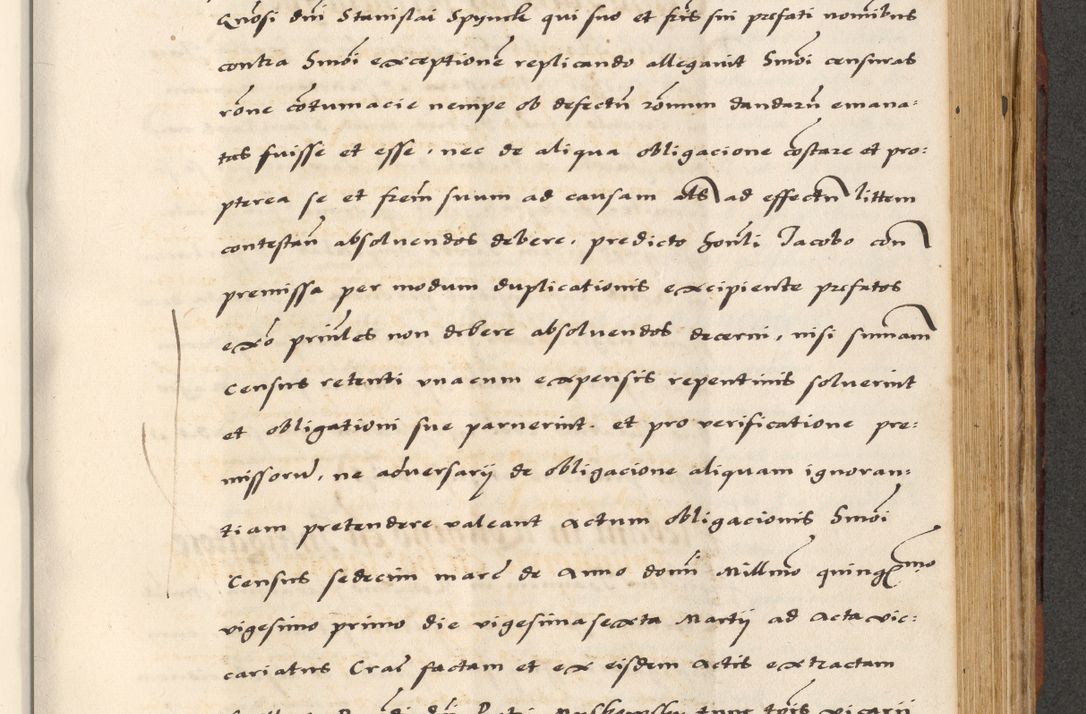 Gnosi dni Stanislai Spynek qui suo et fris sui prefati nominibus
contra Smoi exceptione replicando allegavit Smoi censuras
rone cotumacie nempe ob defectu ronum dandaru emana-
tas fuisse et esse, nec de aliqua obligacione costare et pro-
pterea se et frem suum ad causam als ad effectu littem
contestan absolvendos debere, predicto honli Jacobo con
premissa per modum duplicationis excipiente prefatos
exo prinles non debere absolvendos decerni, nisi sumam
census retenti unacum expensis repentinis solverint
et obligationi sue paruerint. et pro verificatione pre-
missoru, ne adversarij de obligacione aliquam ignoran-
tiam pretendere valeant actum obligacionis Smoi
census sedecim marc de Anno domi Millmo quingmo
vigesimo primo die vigesima sexta Martij ad Acta vic-
cariatus Crac factam et ex eisdem Actis extractam
dni Petri tunc vicarii